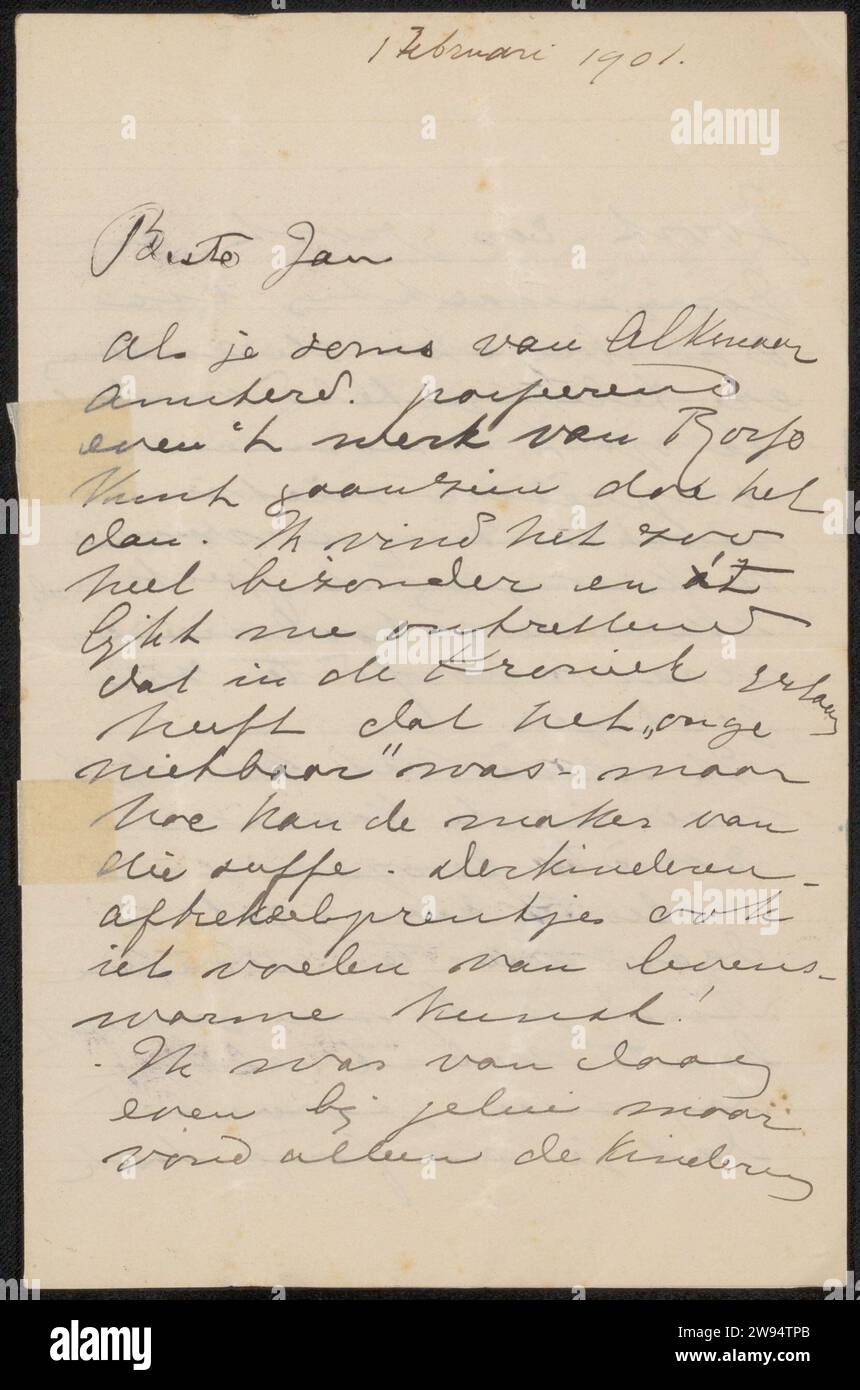 1 Februari 1901.
Beste Jan
als je soms van Alkmaar
Amsterd. passeerend
even 't werk van
kunt gaan zien doe het
dan. Ik vind het zoo
heel bizonder en 't
lijkt me ontzettend
dat in de Kroniek gestaan
heeft dat het „onge
nietbaar" was - maar
hoe kan de maker van
die suffe - Derkinderen-
aftrekselprentjes ook
iet voelen van levens-
warme kunst!
Ik was van daag
even bij jelui maar
vond alleen de kinderen
alamy
Image ID: 2W94TPB
www.alamy.com